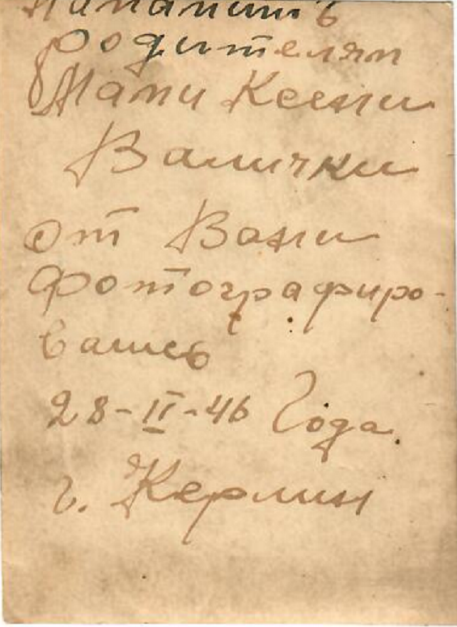 Напамить
родителям
Мами Ксени
Валички
От Вани
фотографиро-
вались
28-II-46 Года.
г. Керлин